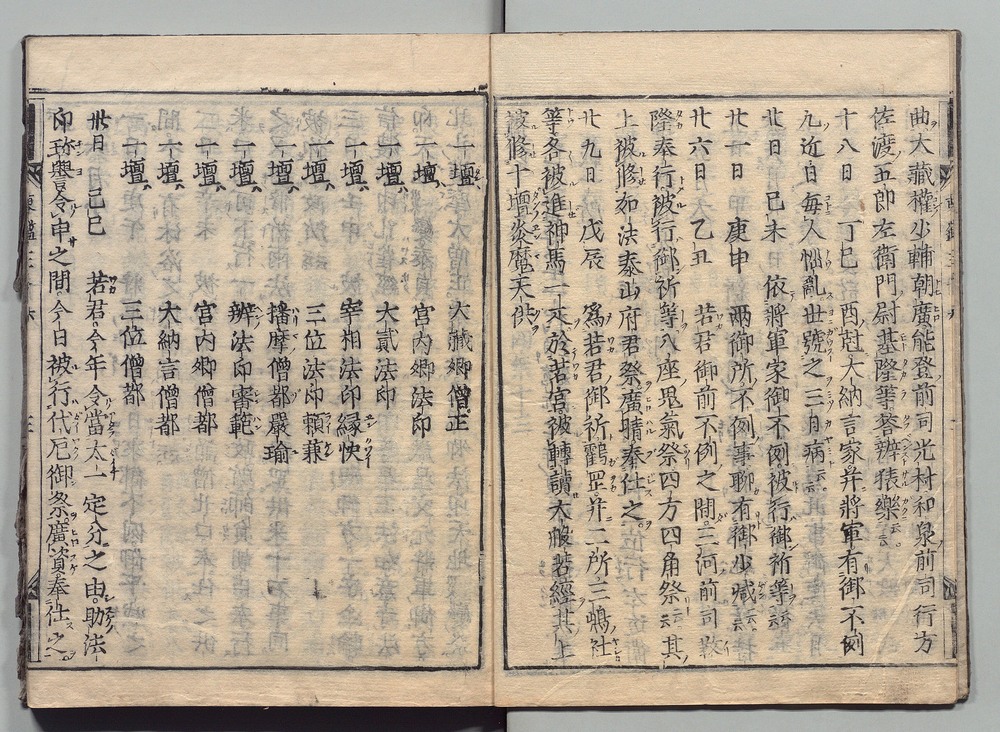 曲大藏權少輔朝廣能登前司光村和泉前司行方
佐渡五郎左衛門尉基隆等答辨猿樂云云。
十八日 丁巳 酉尅大納言家并將軍有御不例
九近日毎人惱亂世號之三日病云云。
廿日 己未 依將軍家御不例。被行御祈等云云
廿一日 庚申 兩御所不例事聊有御少減云云。
廿六日 乙丑 若君御前不例之間。三河前司敎
隆奉行被行御祈等八座鬼氣祭四方四角祭云云其
上被修如法泰山府君祭廣晴奉仕之。
廿九日 戊辰 爲若君御祈鶴罡并二所三嶋社
等各被進神馬一疋於若宮被轉讀大般若經其上
被修十壇炎魔天供
一壇 大藏卿僧正
一壇 宮内卿法印
一壇 大貳法印
一壇 宰相法印縁快
一壇 三位法印頼兼
一壇 播摩僧都嚴瑜
一壇 辨法印審範
一壇 宮内卿僧都
一壇 大納言僧都
一壇 三位僧都
卅日 己巳 若君。今年令當太一定分之由。助法
印珎譽令申之間今日被行代厄御祭。廣資奉仕之